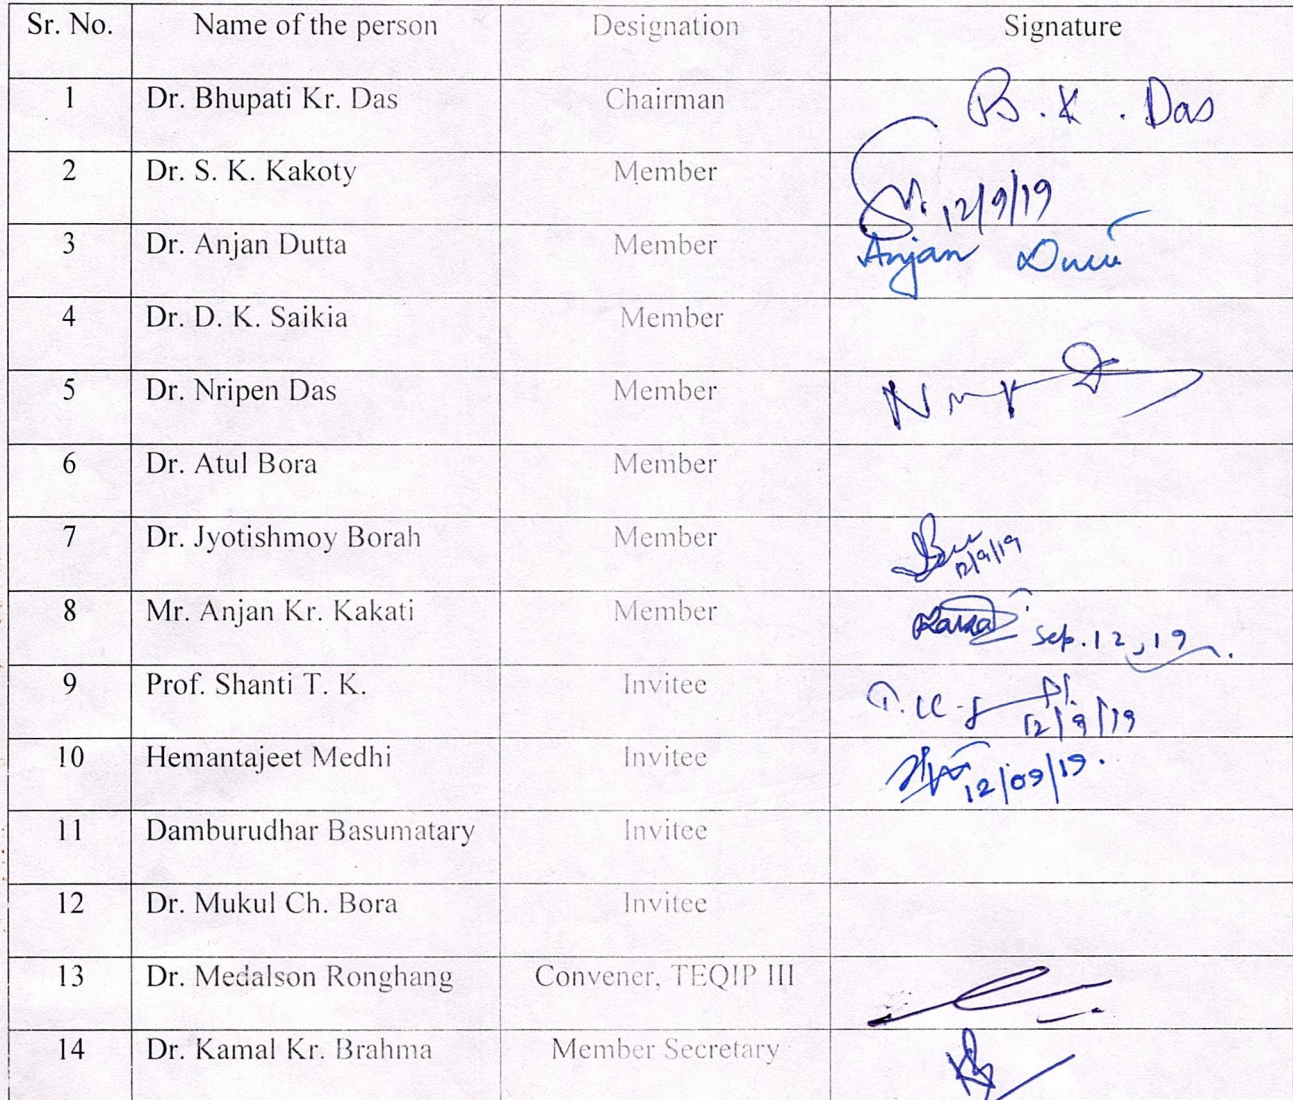 Sr. No. Name of the person Designation Signature
1 Dr. Bhupati Kr. Das Chairman B. K. Das
2 Dr. S. K. Kakoty Member 12/9/19
3 Dr. Anjan Dutta Member Anjan Dutta
4 Dr. D. K. Saikia Member
5 Dr. Nripen Das Member
6 Dr. Atul Bora Member
7 Dr. Jyotishmoy Borah Member 12/9/19
8 Mr. Anjan Kr. Kakati Member Sep. 12, 19.
9 Prof. Shanti T. K. Invitee 12/9/19
10 Hemantajeet Medhi Invitee 12/09/19.
11 Damburudhar Basumatary Invitee
12 Dr. Mukul Ch. Bora Invitee
13 Dr. Medalson Ronghang Convener, TEQIP III
14 Dr. Kamal Kr. Brahma Member Secretary